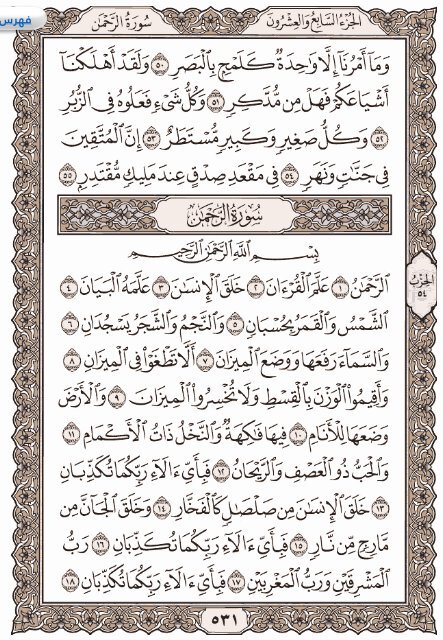 فهرس
سُورَةُ الرَّحْمَٰن
الجُزءُ السَّابِعُ وَالعِشْرُونَ
وَمَآ أَمْرُنَآ إِلَّا وَٰحِدَةٌ كَلَمْحٍۭ بِٱلْبَصَرِ ٥٠ وَلَقَدْ أَهْلَكْنَآ
أَشْيَاعَكُمْ فَهَلْ مِن مُّدَّكِرٍ ٥١ وَكُلُّ شَىْءٍ فَعَلُوهُ فِى ٱلزُّبُرِ
٥٢ وَكُلُّ صَغِيرٍ وَكَبِيرٍ مُّسْتَطَرٌ ٥٣ إِنَّ ٱلْمُتَّقِينَ
فِى جَنَّٰتٍ وَنَهَرٍ ٥٤ فِى مَقْعَدِ صِدْقٍ عِندَ مَلِيكٍ مُّقْتَدِرٍۭ ٥٥
سُورَةُ الرَّحْمَٰن
بِسْمِ ٱللَّهِ ٱلرَّحْمَٰنِ ٱلرَّحِيمِ
ٱلرَّحْمَٰنُ ١ عَلَّمَ ٱلْقُرْءَانَ ٢ خَلَقَ ٱلْإِنسَٰنَ ٣ عَلَّمَهُ ٱلْبَيَانَ ٤
ٱلشَّمْسُ وَٱلْقَمَرُ بِحُسْبَانٍ ٥ وَٱلنَّجْمُ وَٱلشَّجَرُ يَسْجُدَانِ ٦
وَٱلسَّمَآءَ رَفَعَهَا وَوَضَعَ ٱلْمِيزَانَ ٧ أَلَّا تَطْغَوْا۟ فِى ٱلْمِيزَانِ ٨
وَأَقِيمُوا۟ ٱلْوَزْنَ بِٱلْقِسْطِ وَلَا تُخْسِرُوا۟ ٱلْمِيزَانَ ٩ وَٱلْأَرْضَ
وَضَعَهَا لِلْأَنَامِ ١٠ فِيهَا فَٰكِهَةٌ وَٱلنَّخْلُ ذَاتُ ٱلْأَكْمَامِ ١١
وَٱلْحَبُّ ذُو ٱلْعَصْفِ وَٱلرَّيْحَانُ ١٢ فَبِأَىِّ ءَالَآءِ رَبِّكُمَا تُكَذِّبَانِ
١٣ خَلَقَ ٱلْإِنسَٰنَ مِن صَلْصَٰلٍ كَٱلْفَخَّارِ ١٤ وَخَلَقَ ٱلْجَآنَّ مِن
مَّارِجٍ مِّن نَّارٍ ١٥ فَبِأَىِّ ءَالَآءِ رَبِّكُمَا تُكَذِّبَانِ ١٦ رَبُّ
ٱلْمَشْرِقَيْنِ وَرَبُّ ٱلْمَغْرِبَيْنِ ١٧ فَبِأَىِّ ءَالَآءِ رَبِّكُمَا تُكَذِّبَانِ ١٨
الحِزْبُ
٥٤
٥٣١